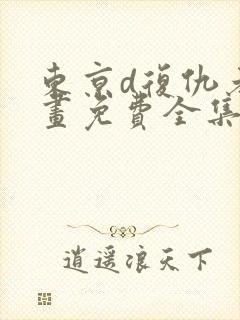 東京d復仇者
畫免費全集
逍遥浪天下